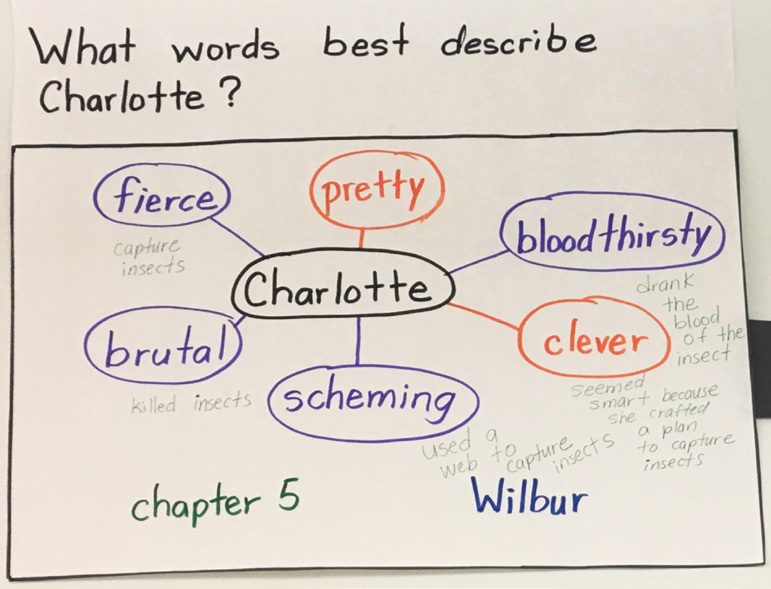 What words best describe
Charlotte?
fierce
capture
insects
pretty
bloodthirsty
drank
the
blood
of the
insect
Charlotte
brutal
killed insects
scheming
used a
web to
capture
insects
clever
seemed
smart because
she crafted
a plan
to capture
insects
chapter 5
Wilbur